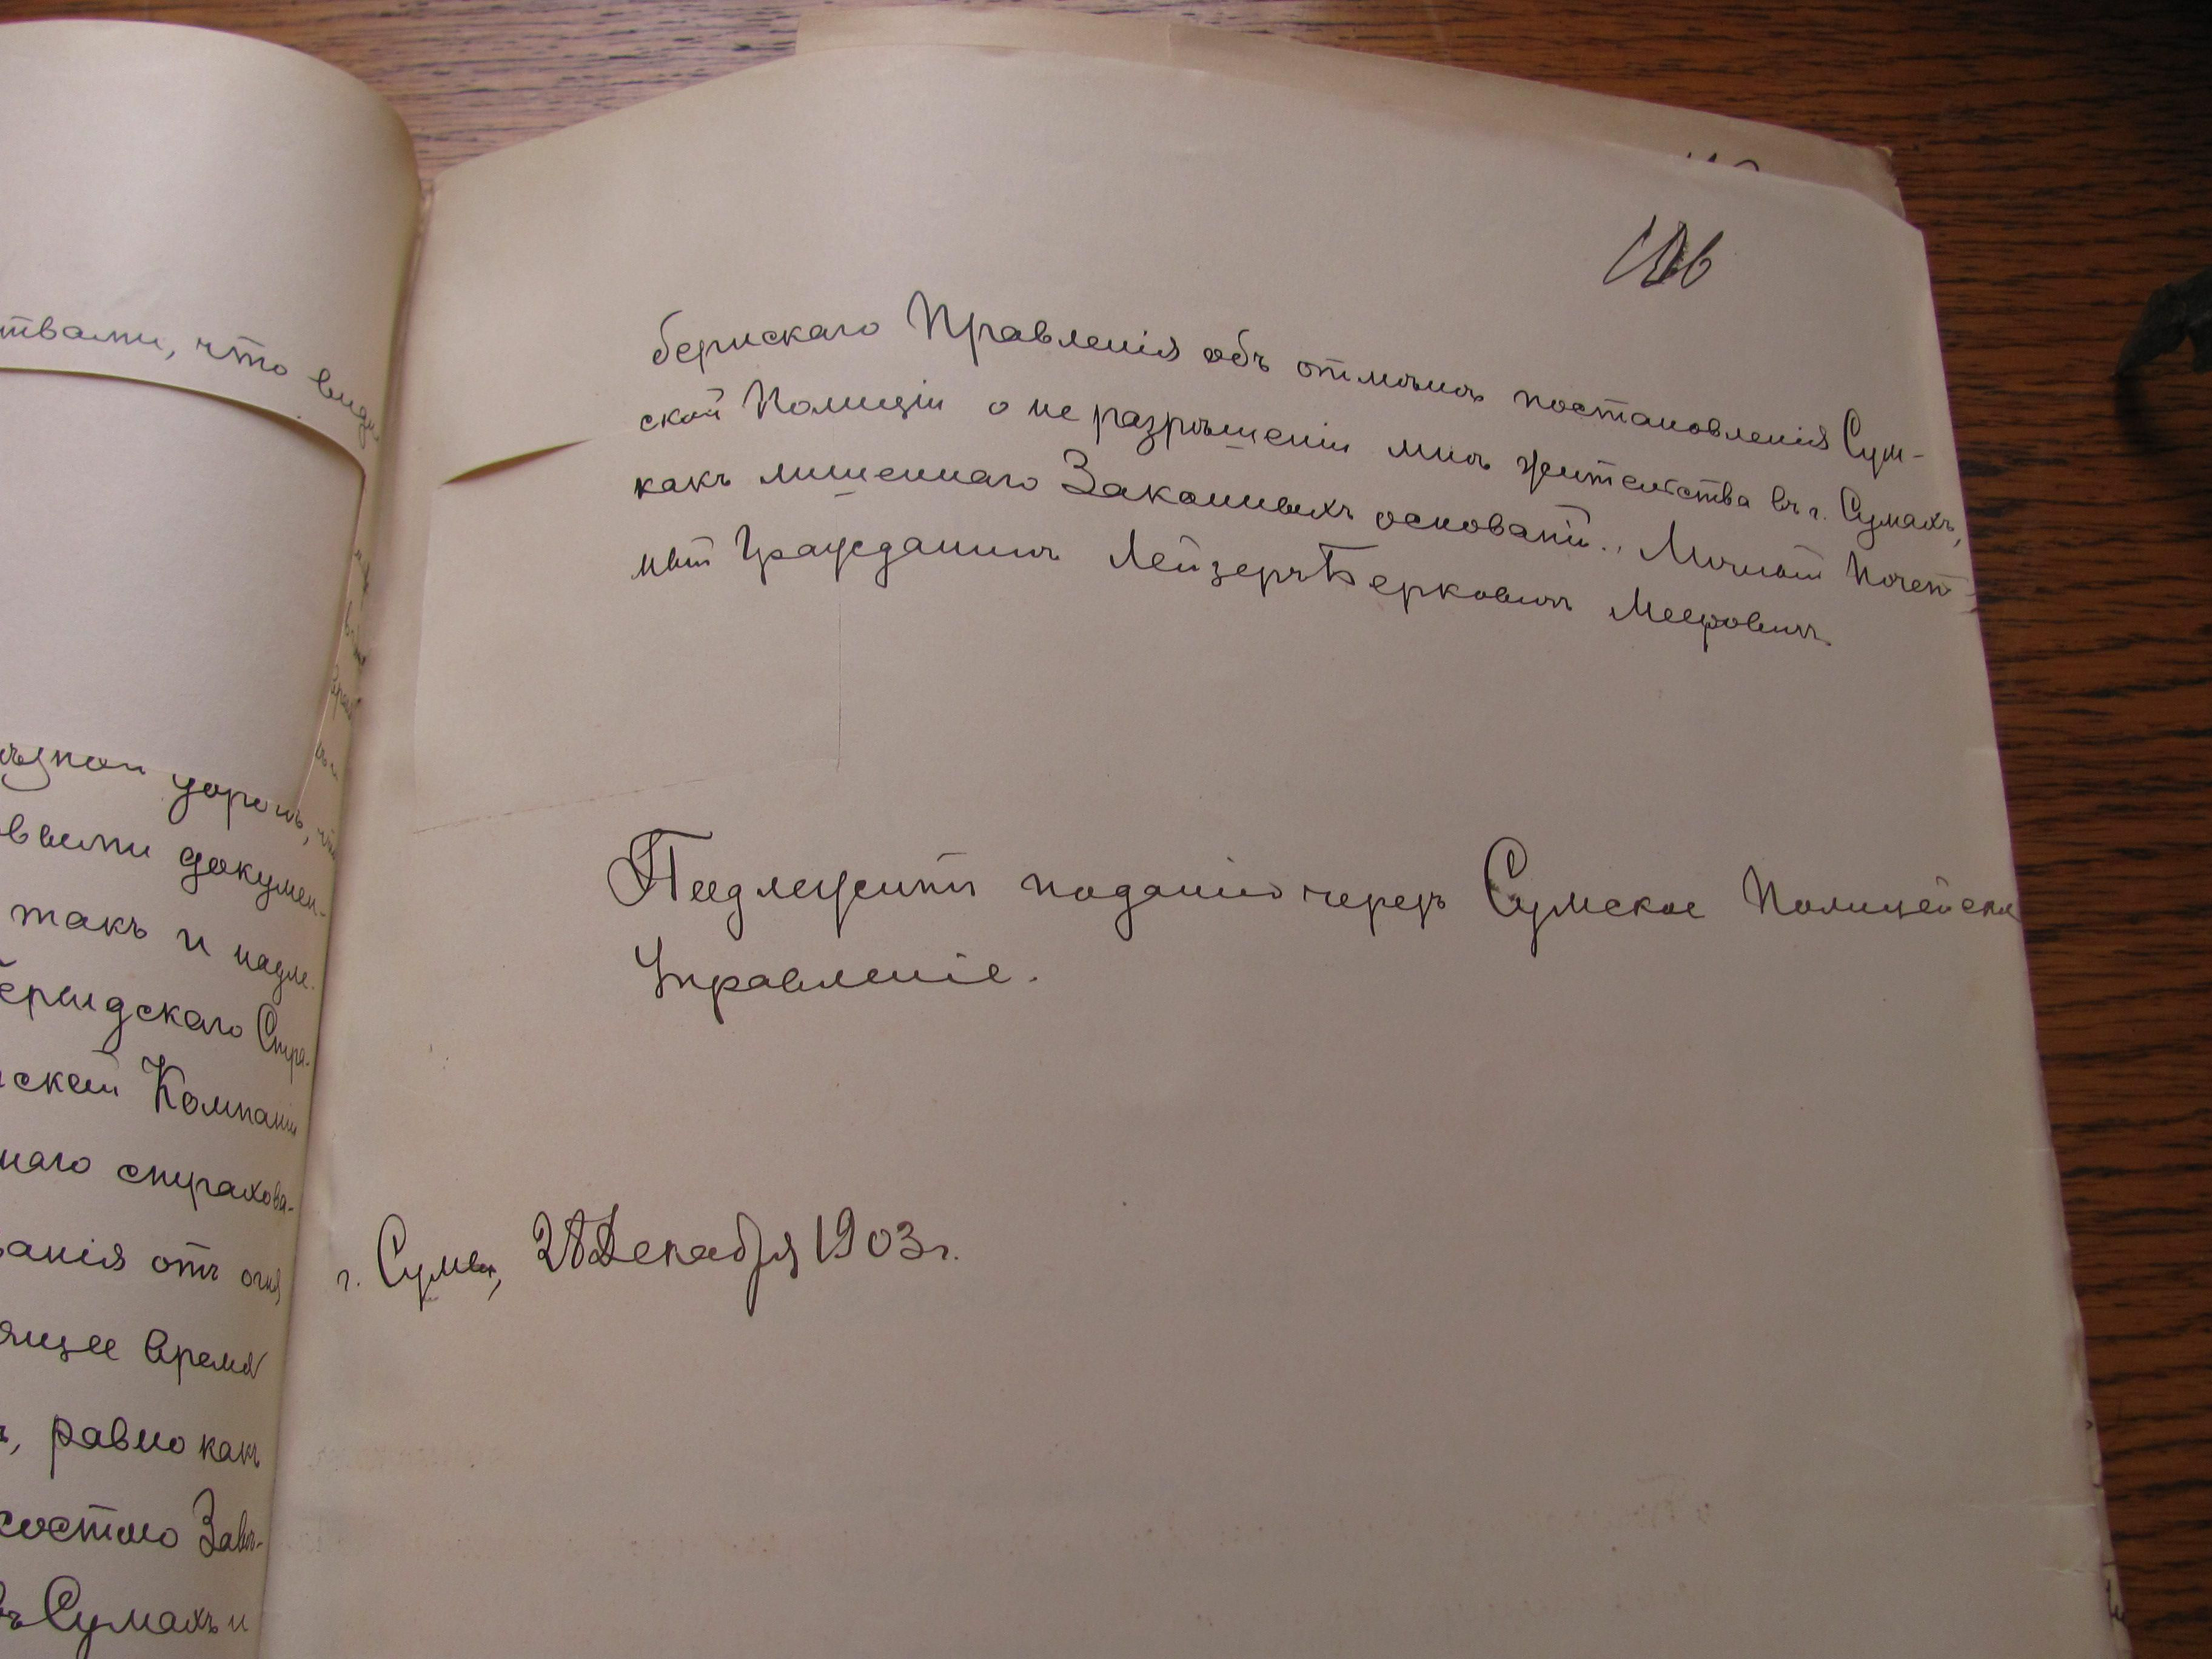 твами, что виду
дорогѣ,
выми докумен-
такъ и надле-
скаго Стра-
ской Компаніи
наго страхова-
ванія отъ огня
ящее время
равно какъ
состою Завѣ-
въ Сумахъ и
бернскаго Правленія объ отмѣнѣ постановленія Сум-
ской Полиціи о не разрѣшеніи мнѣ жительства въ г. Сумахъ,
какъ лишеннаго Законныхъ основаній., Личный Почет-
ный Гражданинъ Лейзеръ Берковичъ Мееровичъ
Подлежитъ подачѣ черезъ Сумское Полицейское
Управленіе.
г. Сумы, Декабря 1903 г.